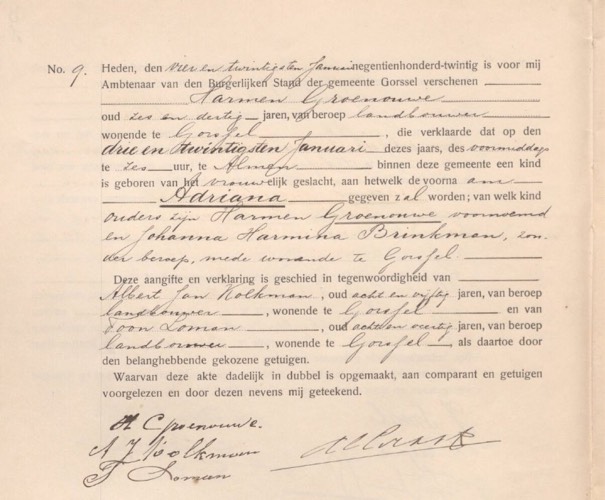 No. 9. Heden, den vier en twintigsten Januari negentienhonderd-twintig is voor mij
Ambtenaar van den Burgerlijken Stand der gemeente Gorssel verschenen
Harmen Groenouwe
oud zes en dertig jaren, van beroep landbouwer
wonende te Gorssel, die verklaarde dat op den
drie en twintigsten Januari dezes jaars, des voormiddags
te zes uur, te Almen binnen deze gemeente een kind
is geboren van het vrouwelijk geslacht, aan hetwelk de voorna am
Adriana gegeven zal worden; van welk kind
ouders zijn Harmen Groenouwe voornoemd
en Johanna Harmina Brinkman, zon-
der beroep, mede wonende te Gorssel
Deze aangifte en verklaring is geschied in tegenwoordigheid van
Albert Jan Kolkman, oud acht en vijftig jaren, van beroep
landbouwer, wonende te Gorssel en van
Toon Loman, oud acht en veertig jaren, van beroep
landbouwer, wonende te Gorssel, als daartoe door
den belanghebbende gekozene getuigen.
Waarvan deze akte dadelijk in dubbel is opgemaakt, aan comparant en getuigen
voorgelezen en door dezen nevens mij geteekend.
H Groenouwe.
A J Kolkman
T Loman